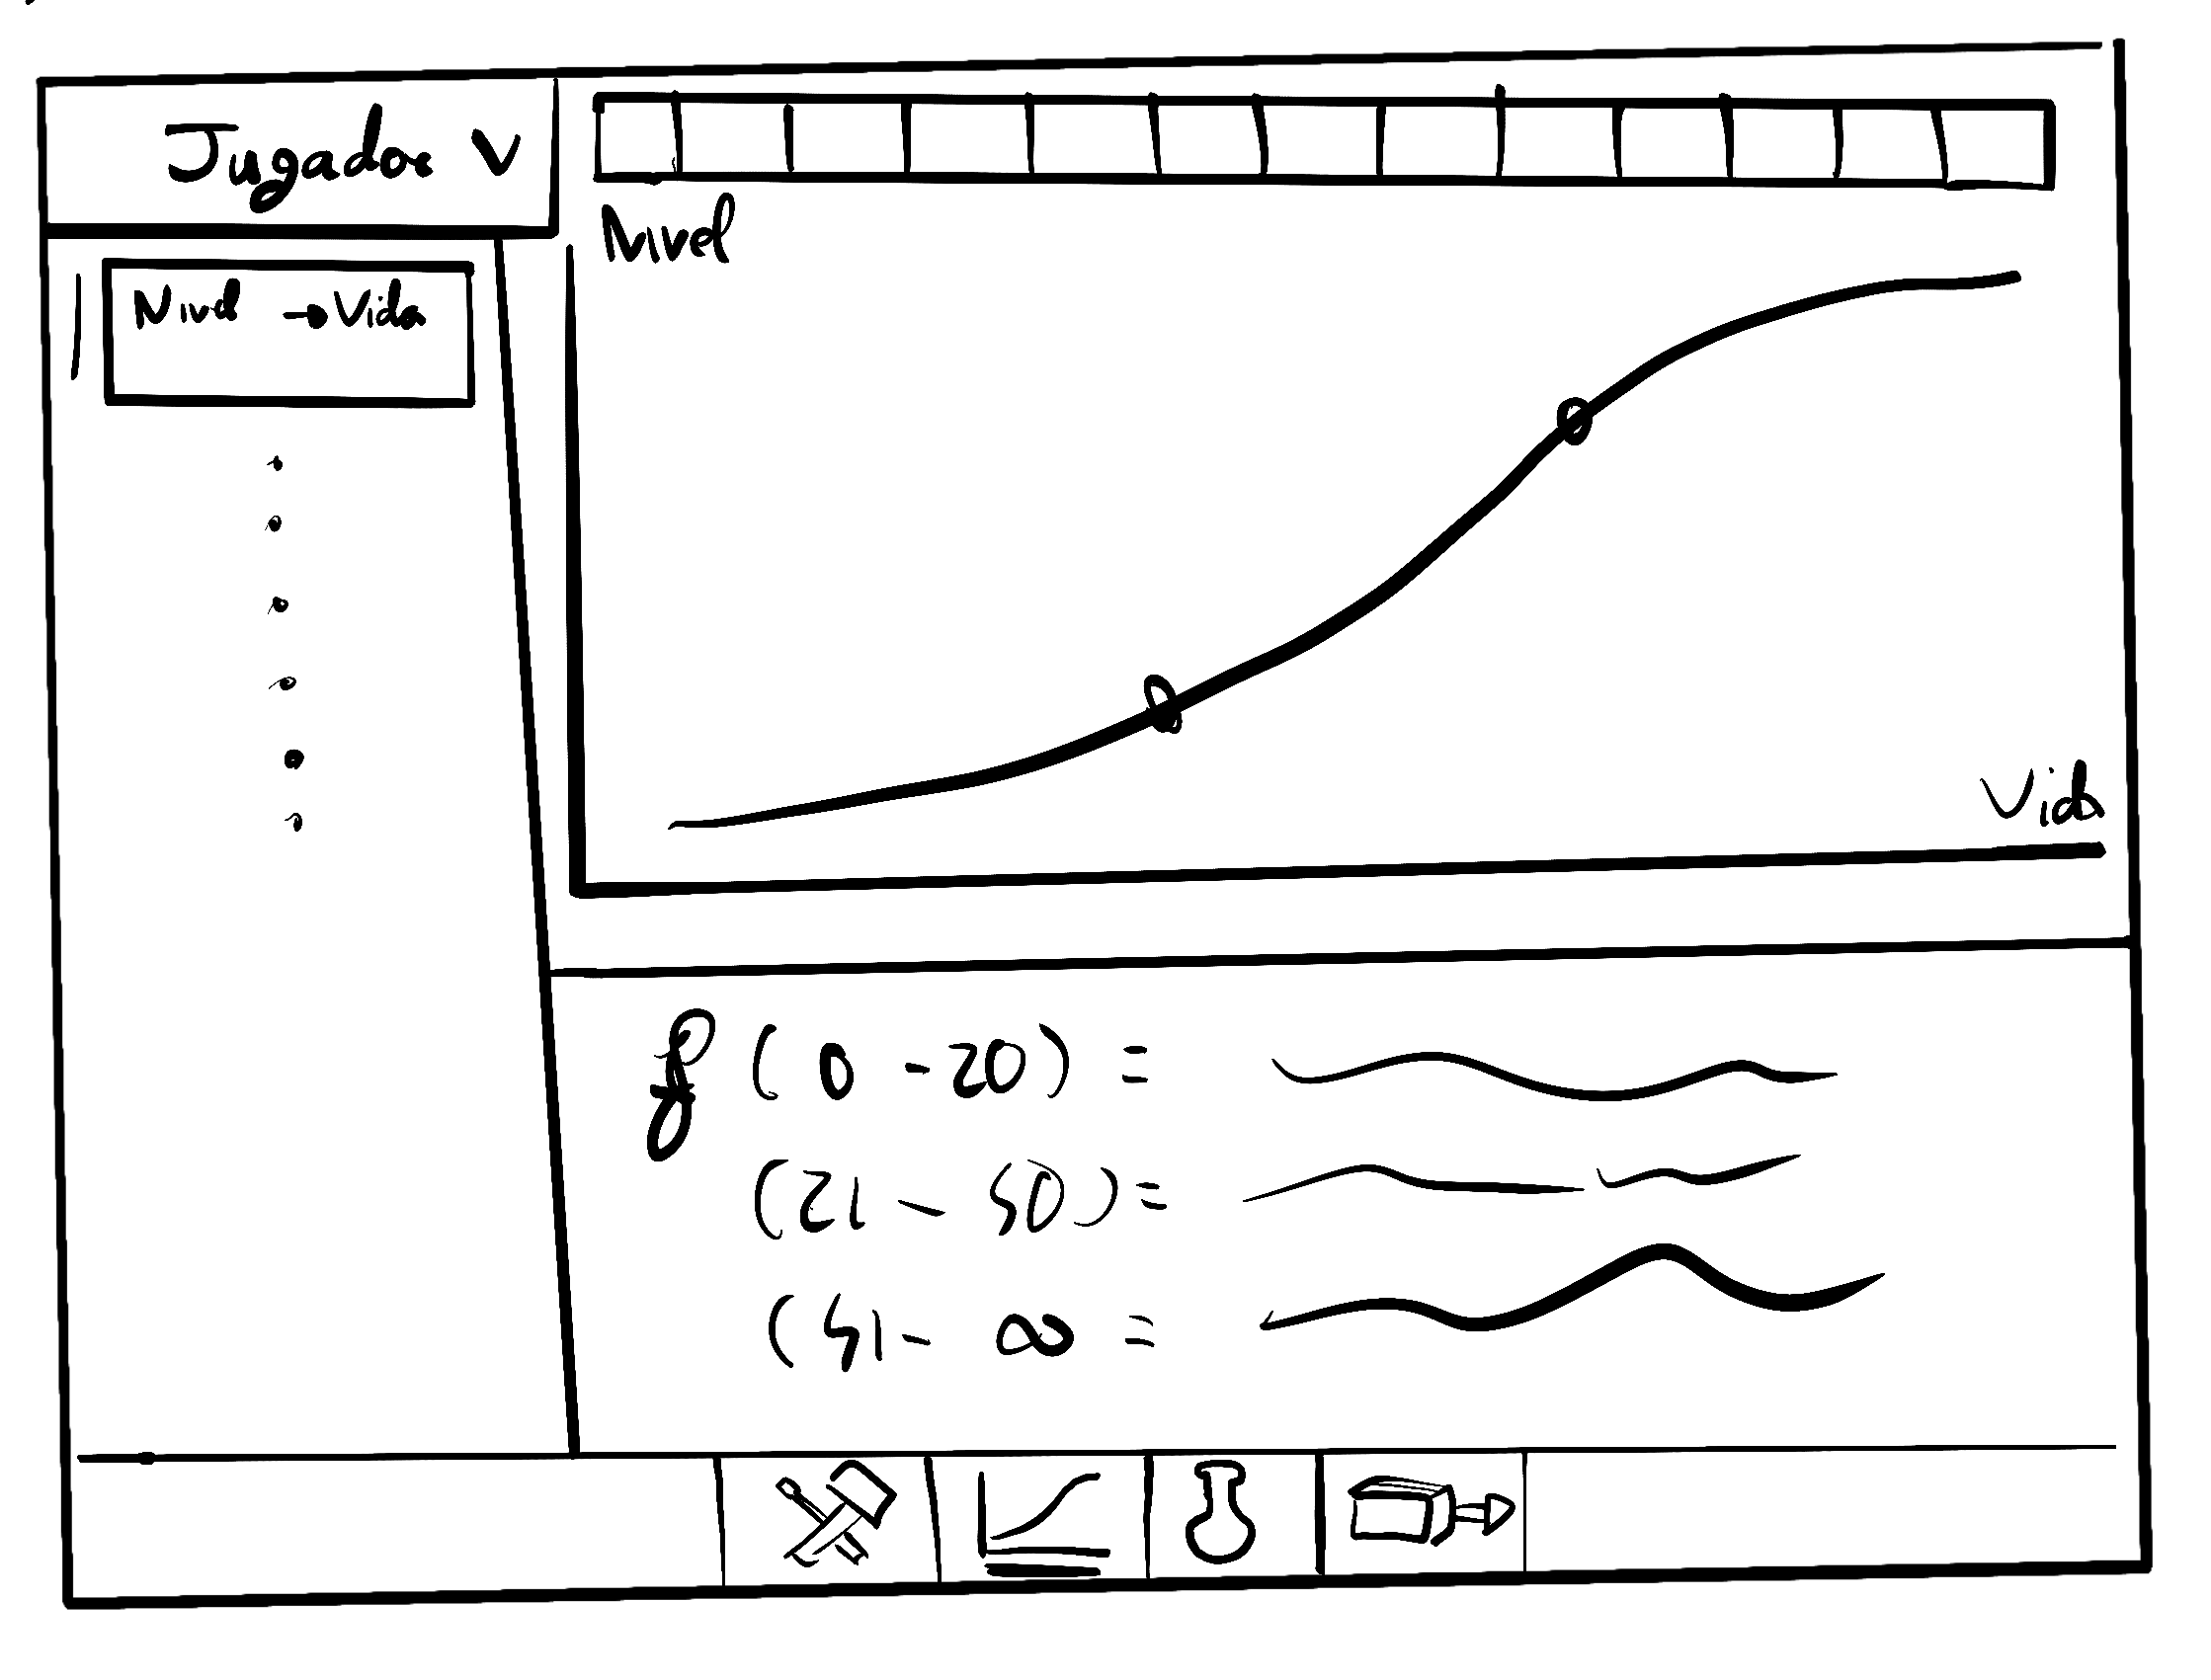 Jugador V
Nivel → Vida
Nivel
Vida
f (0 - 20) =
(21 - 40) =
(41 - ∞ =